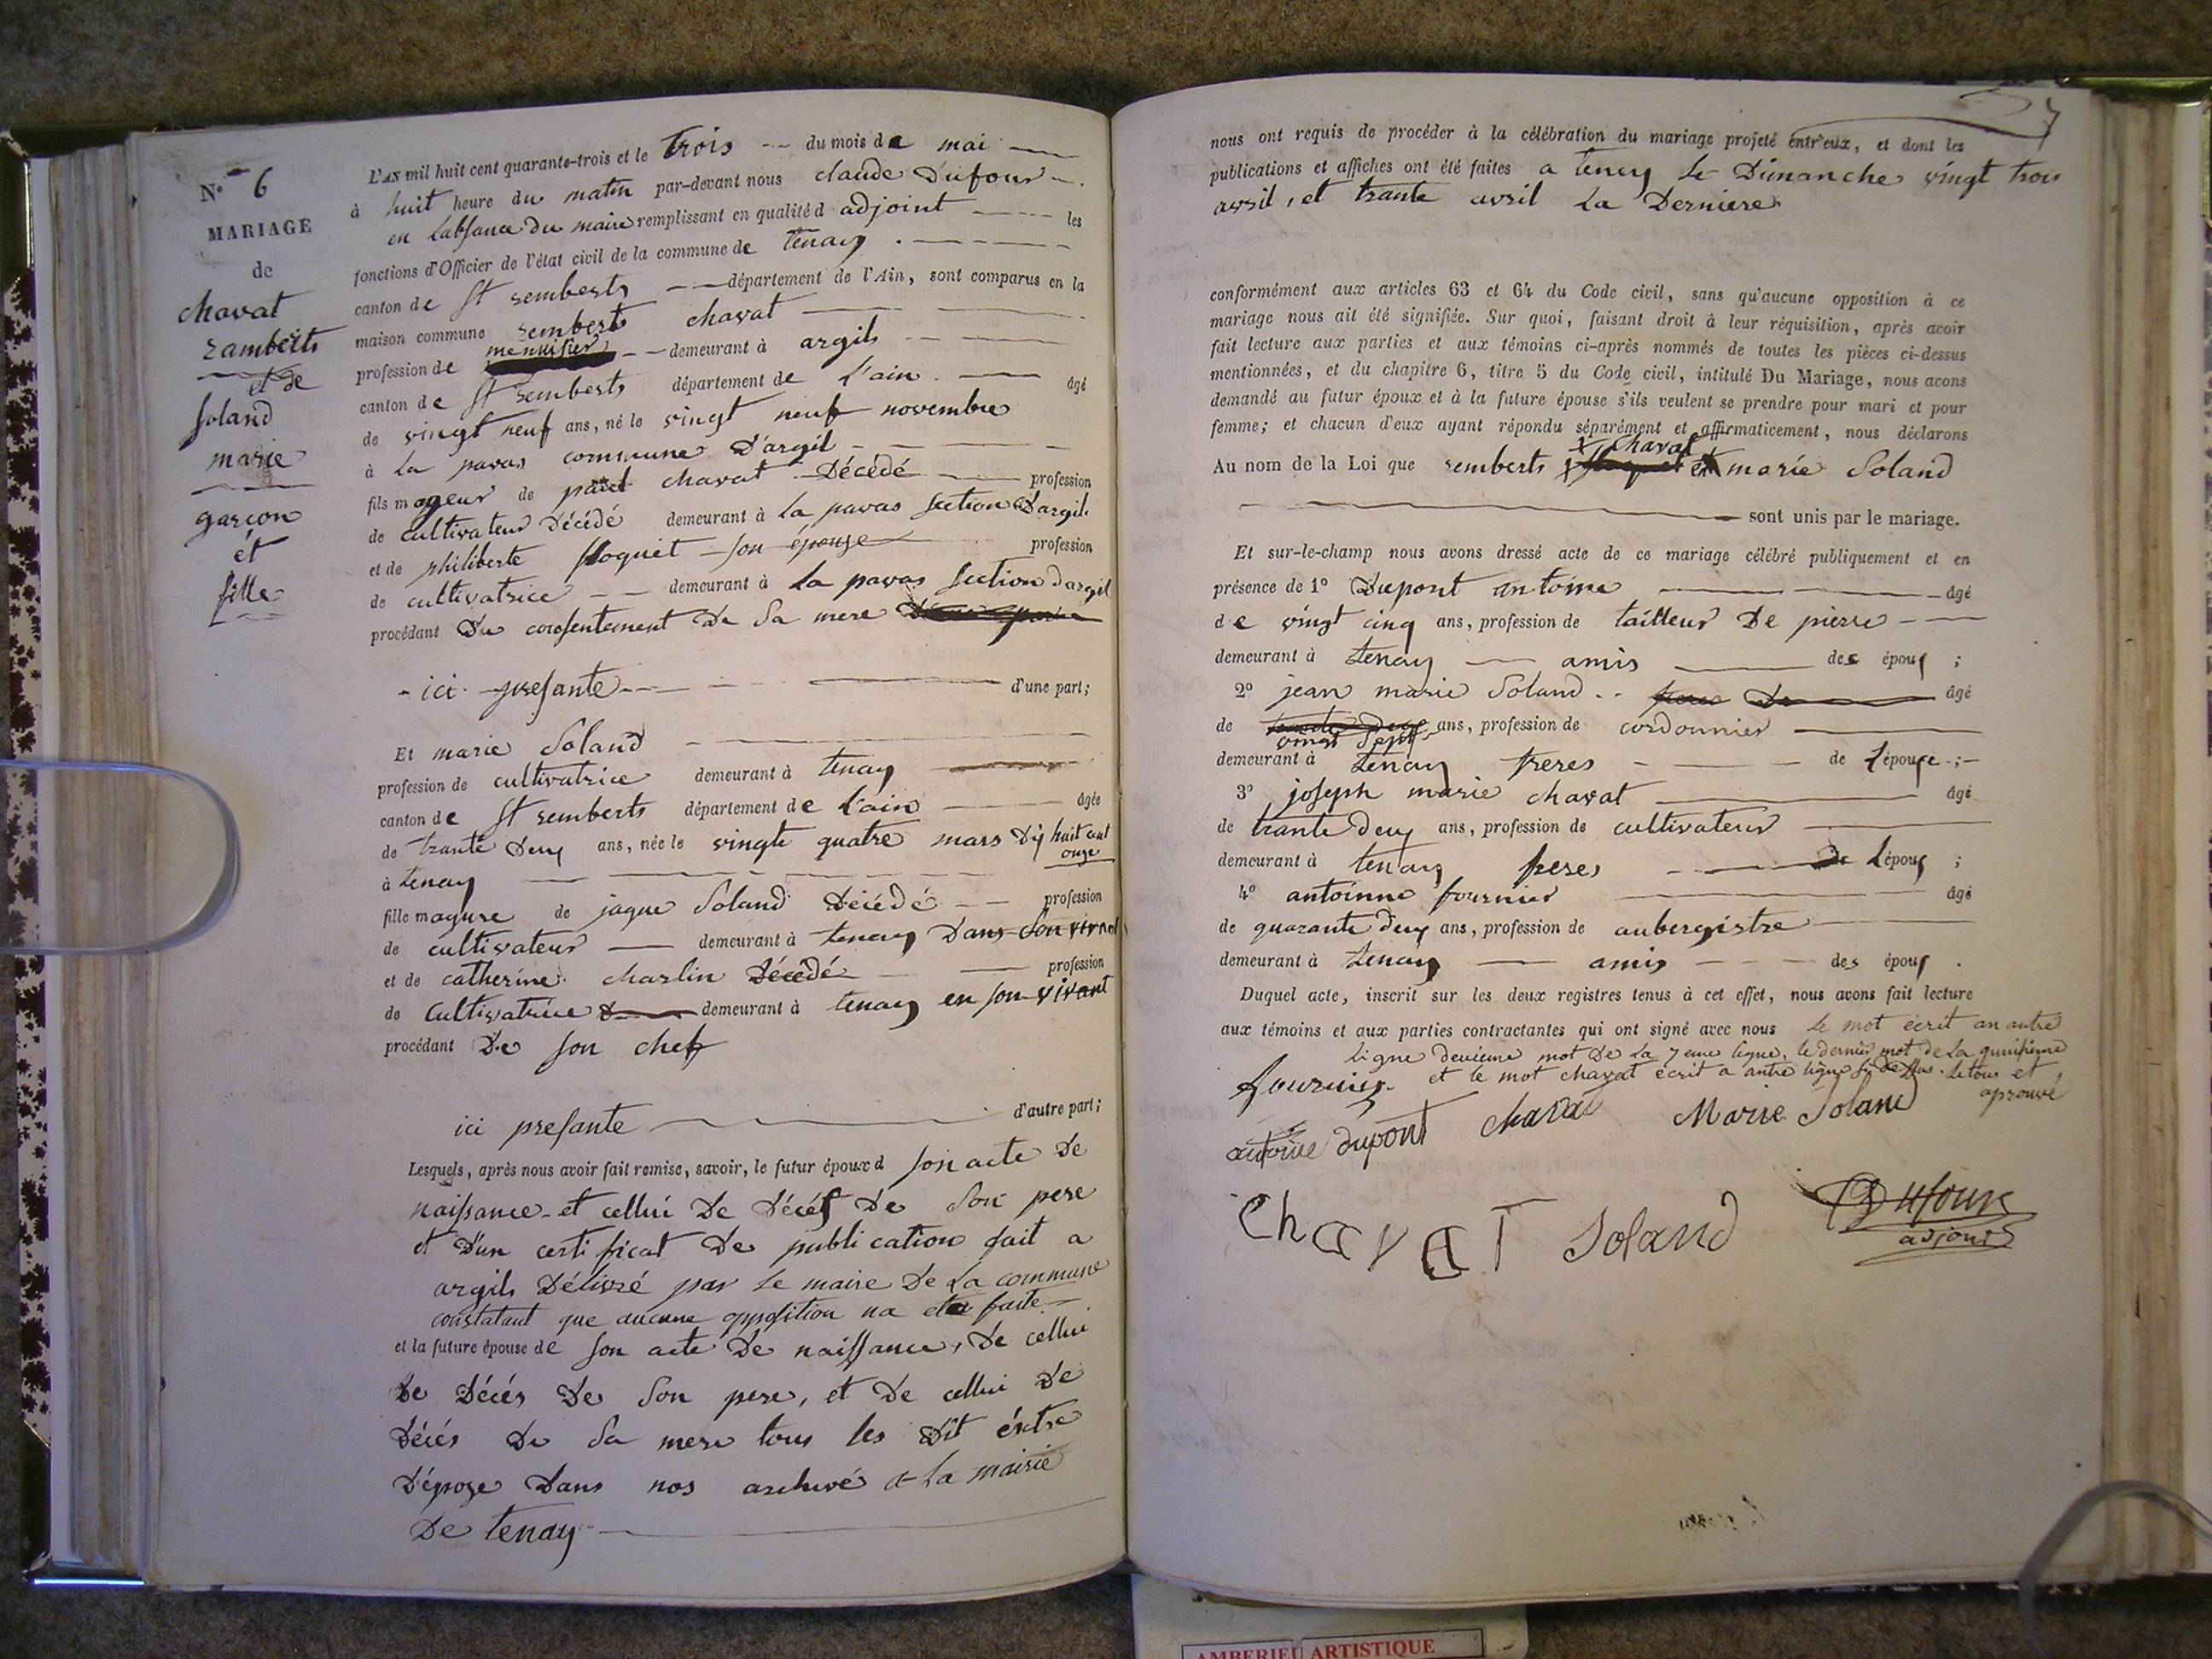 N° 6
MARIAGE
de
chavat
rambert
et de
Soland
marie
garçon
et
fille
L'AN mil huit cent quarante-trois et le trois du mois de mai
à huit heure du matin par-devant nous claude Dufour
en Labsance du maire remplissant en qualité d adjoint les
fonctions d'Officier de l'état civil de la commune de tenay
canton de St remberts département de l'Ain, sont comparus en la
maison commune remberts chavat
profession de menuisier demeurant à argils
canton de St remberts département de L'ain âgé
de vingt neuf ans, né le vingt neuf novembre
à La pavas commune D'argil
fils mageur de paul chavat Décédé profession
de cultivateur Décédé demeurant à La pavas section Dargil
et de philiberte floquet son épouse profession
de cultivatrice demeurant à La pavas section dargil
procédant Du consentement De Sa mere
ici presante d'une part;
Et marie Soland
profession de cultivatrice demeurant à tenay
canton de St remberts département de L'ain âgée
de trante deux ans, née le vingte quatre mars Dix huit cent
onze
à tenay
fille mageure de jaque Soland Décédé profession
de cultivateur demeurant à tenay Dans Son vivant
et de catherine charlin Décédé profession
de Cultivatrice demeurant à tenay en son vivant
procédant De son chef
ici presante d'autre part;
Lesquels, après nous avoir fait remise, savoir, le futur époux d son acte De
naissance et cellui De Décés De Son pere
et D'un certificat De publication fait a
argils Délivré par Le maire De La commune
constatant que aucune opposition na eté faite
et la future épouse de son acte De naissance, De cellui
De Décés De Son pere, et De cellui De
Décés De Sa mere tous les Dit éxtre
D'époze Dans nos archivé a La mairie
De tenay
nous ont requis de procéder à la célébration du mariage projeté entr'eux, et dont les
publications et affiches ont été faites a teney Le Dimanche vingt trois
avril, et trante avril La Derniere
conformément aux articles 63 et 64 du Code civil, sans qu'aucune opposition à ce
mariage nous ait été signifiée. Sur quoi, faisant droit à leur réquisition, après avoir
fait lecture aux parties et aux témoins ci-après nommés de toutes les pièces ci-dessus
mentionnées, et du chapitre 6, titre 5 du Code civil, intitulé Du Mariage, nous avons
demandé au futur époux et à la future épouse s'ils veulent se prendre pour mari et pour
femme; et chacun d'eux ayant répondu séparément et affirmativement, nous déclarons
x chavat
Au nom de la Loi que remberts et marie Soland
sont unis par le mariage.
Et sur-le-champ nous avons dressé acte de ce mariage célébré publiquement et en
présence de 1° Dupont antoine âgé
de vingt cinq ans, profession de tailleur De pierre
demeurant à tenay amis des époux ;
2° jean marie Soland âgé
de vingt Sept ans, profession de cordonnier
demeurant à tenay freres de Lépouse ;
3° joseph marie chavat âgé
de trante deux ans, profession de cultivateur
demeurant à tenay freres De Lépoux ;
4° antoinne fournier âgé
de quarante deux ans, profession de aubergistre
demeurant à tenay amis des époux .
Duquel acte, inscrit sur les deux registres tenus à cet effet, nous avons fait lecture
aux témoins et aux parties contractantes qui ont signé avec nous Le mot écrit an antre
ligne deuxieme mot De La 7 eme ligne, le dernier mot De La quinsieme
et le mot chavat écrit a antre ligne si De ssus. Le tous et
aprouvé
fournier
antoine dupont chavat Marie Soland
ChavaT Soland Dufour
adjoint
AMBERIEU ARTISTIQUE